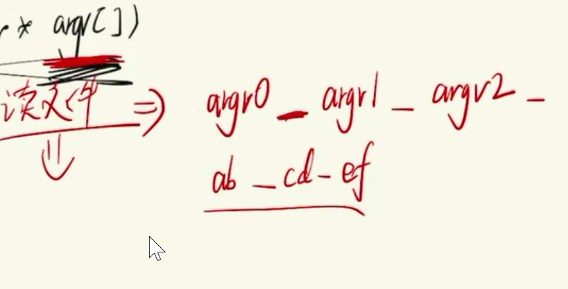 * argv[])
读文件 => argv0 _ argv1 _ argv2 _
ab _ cd _ ef